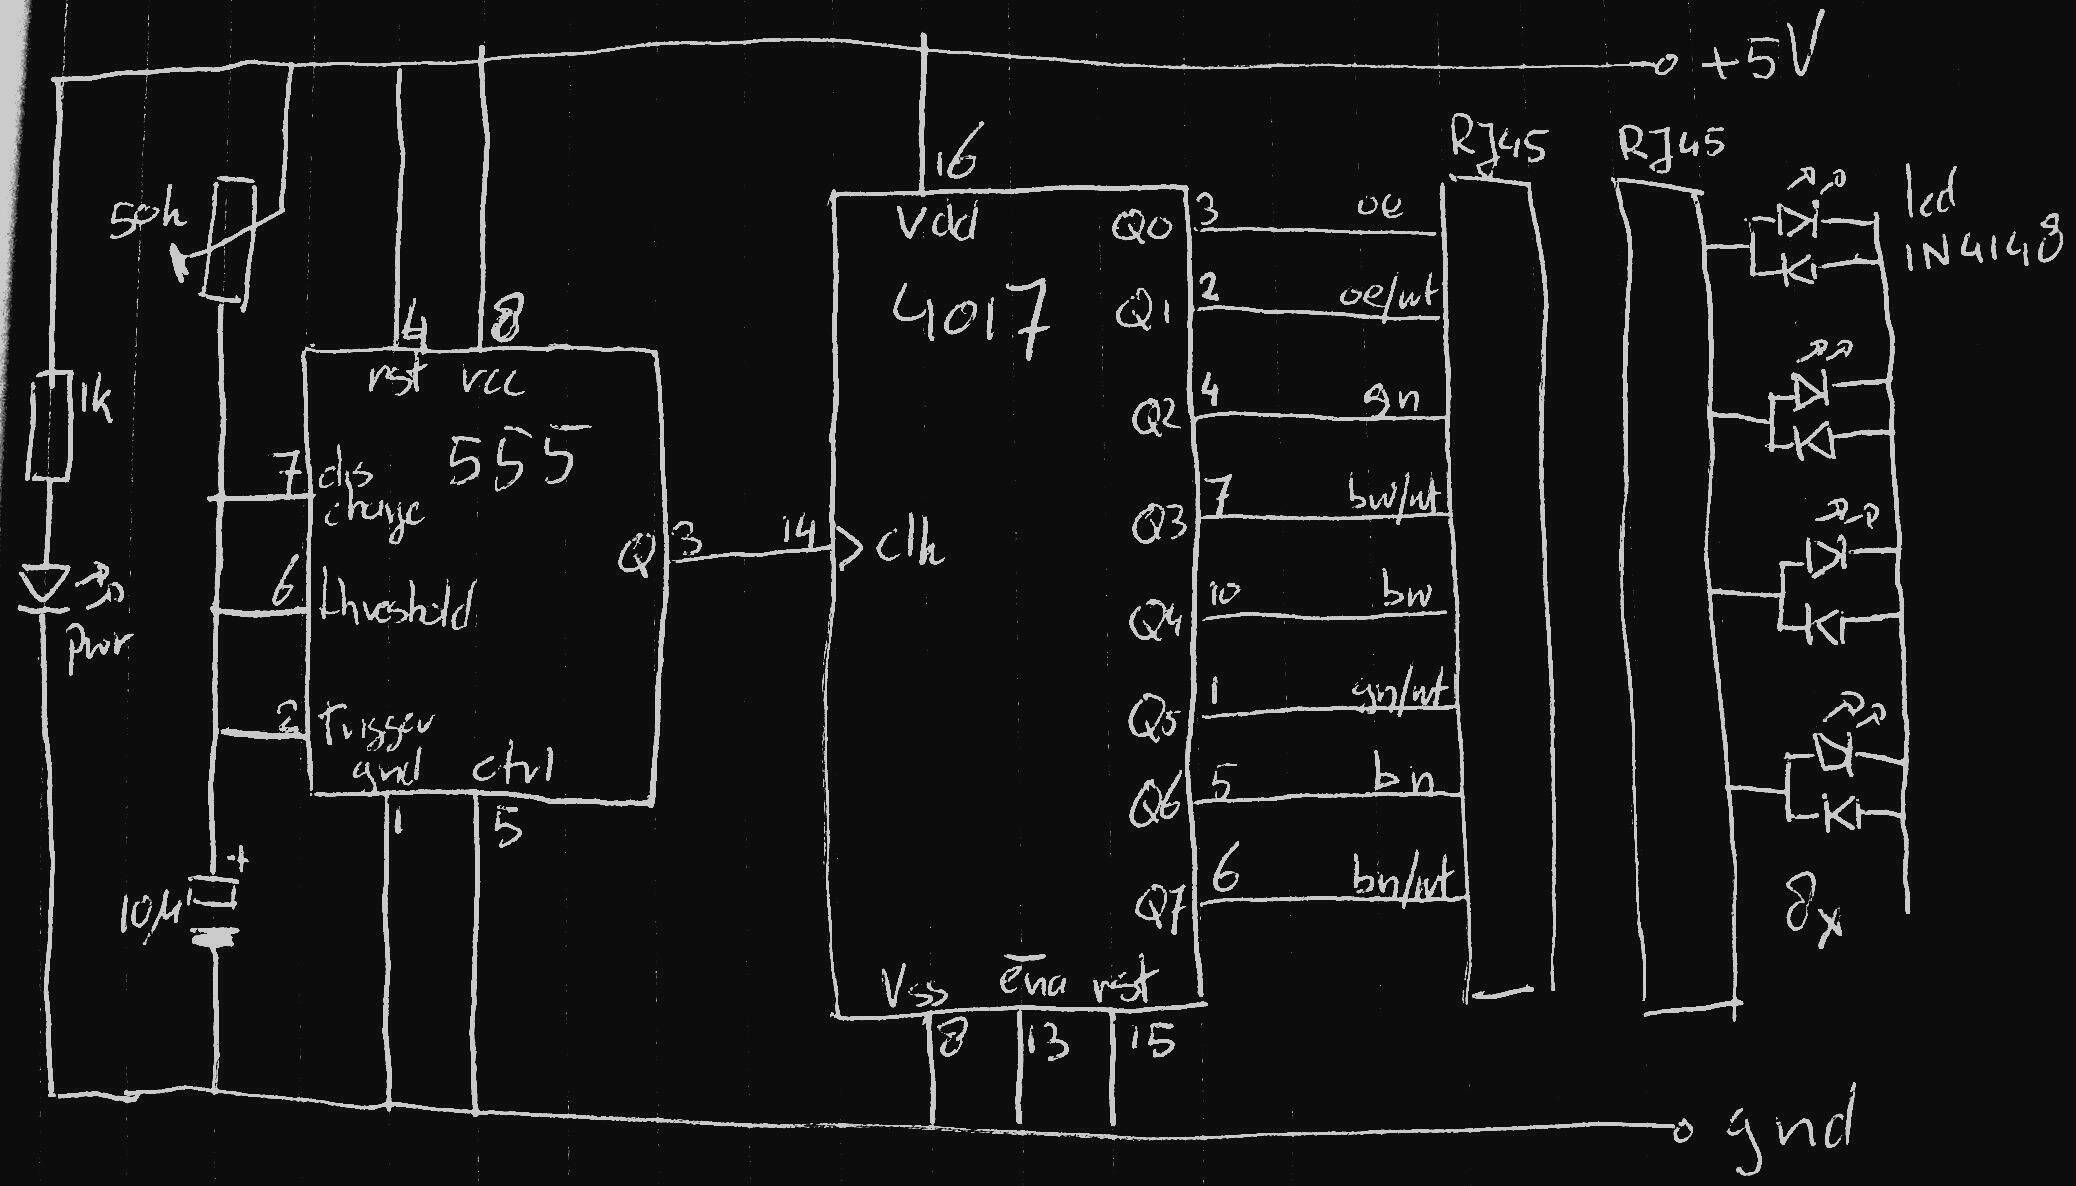 +5V
50k
1k
pwr
10µ
+
4
8
rst
vcc
555
7
dis
charge
6
threshold
2
Trigger
gnd
ctrl
1
5
Q
3
14
clk
16
Vdd
4017
Q0
3
oe
Q1
2
oe/wt
Q2
4
gn
Q3
7
bw/wt
Q4
10
bw
Q5
1
gn/wt
Q6
5
bn
Q7
6
bn/wt
Vss
ena
rst
8
13
15
RJ45
RJ45
led
1N4148
8x
gnd